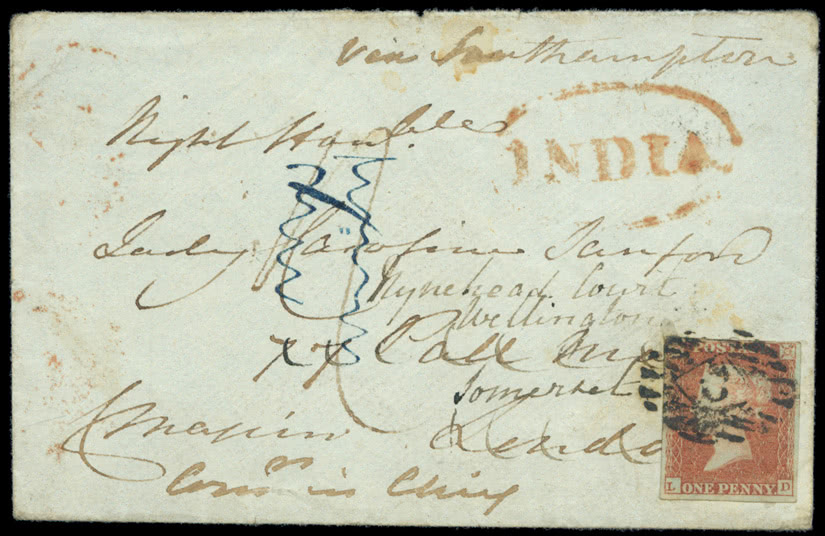 via Southampton
INDIA
Right Honble
Lady Caroline Sanford
Nynehead Court
Wellington
77 Pall Mall
Somerset
London
Comr in Chief
POSTAGE
L D
ONE PENNY.